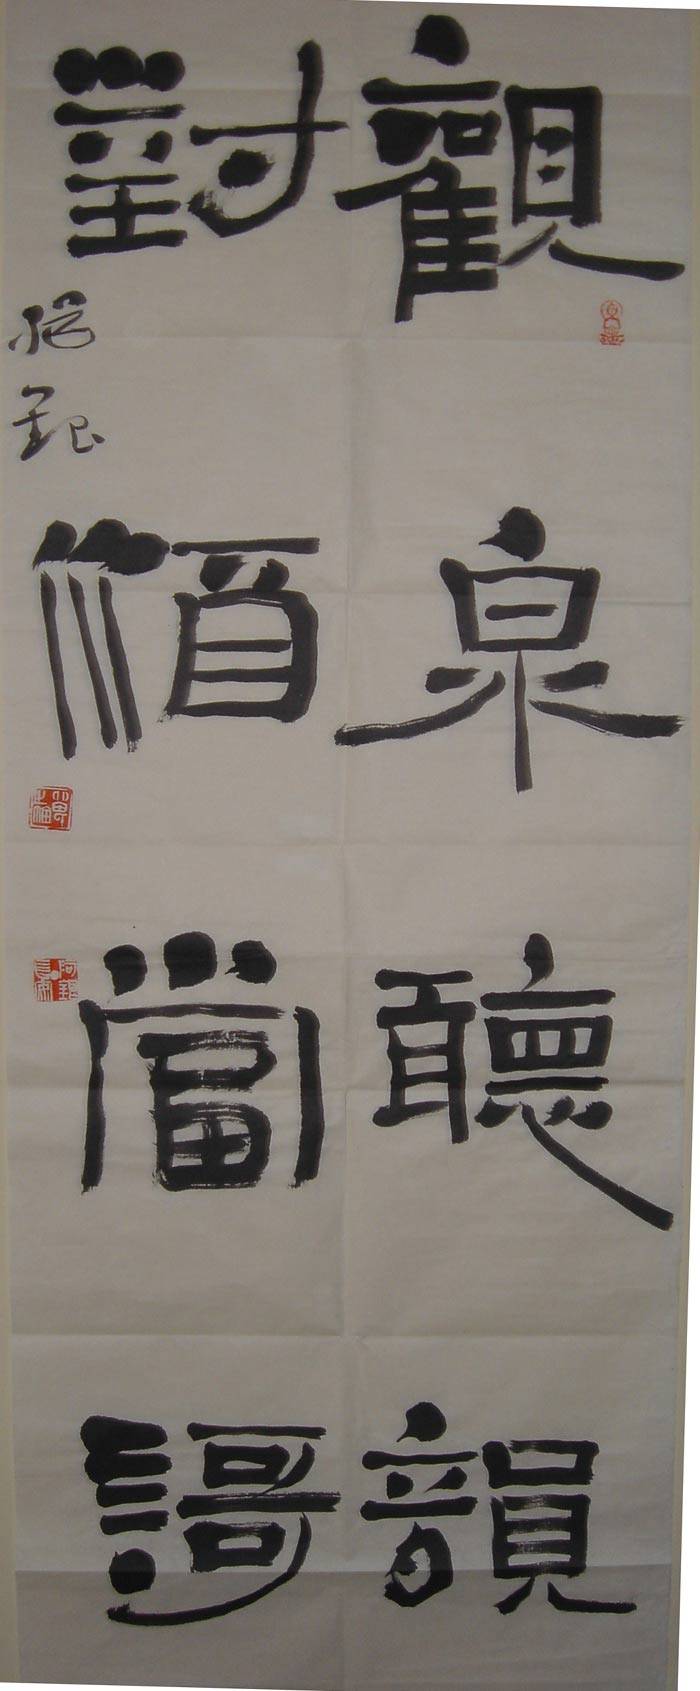 觀泉聽韻
對酒當謌